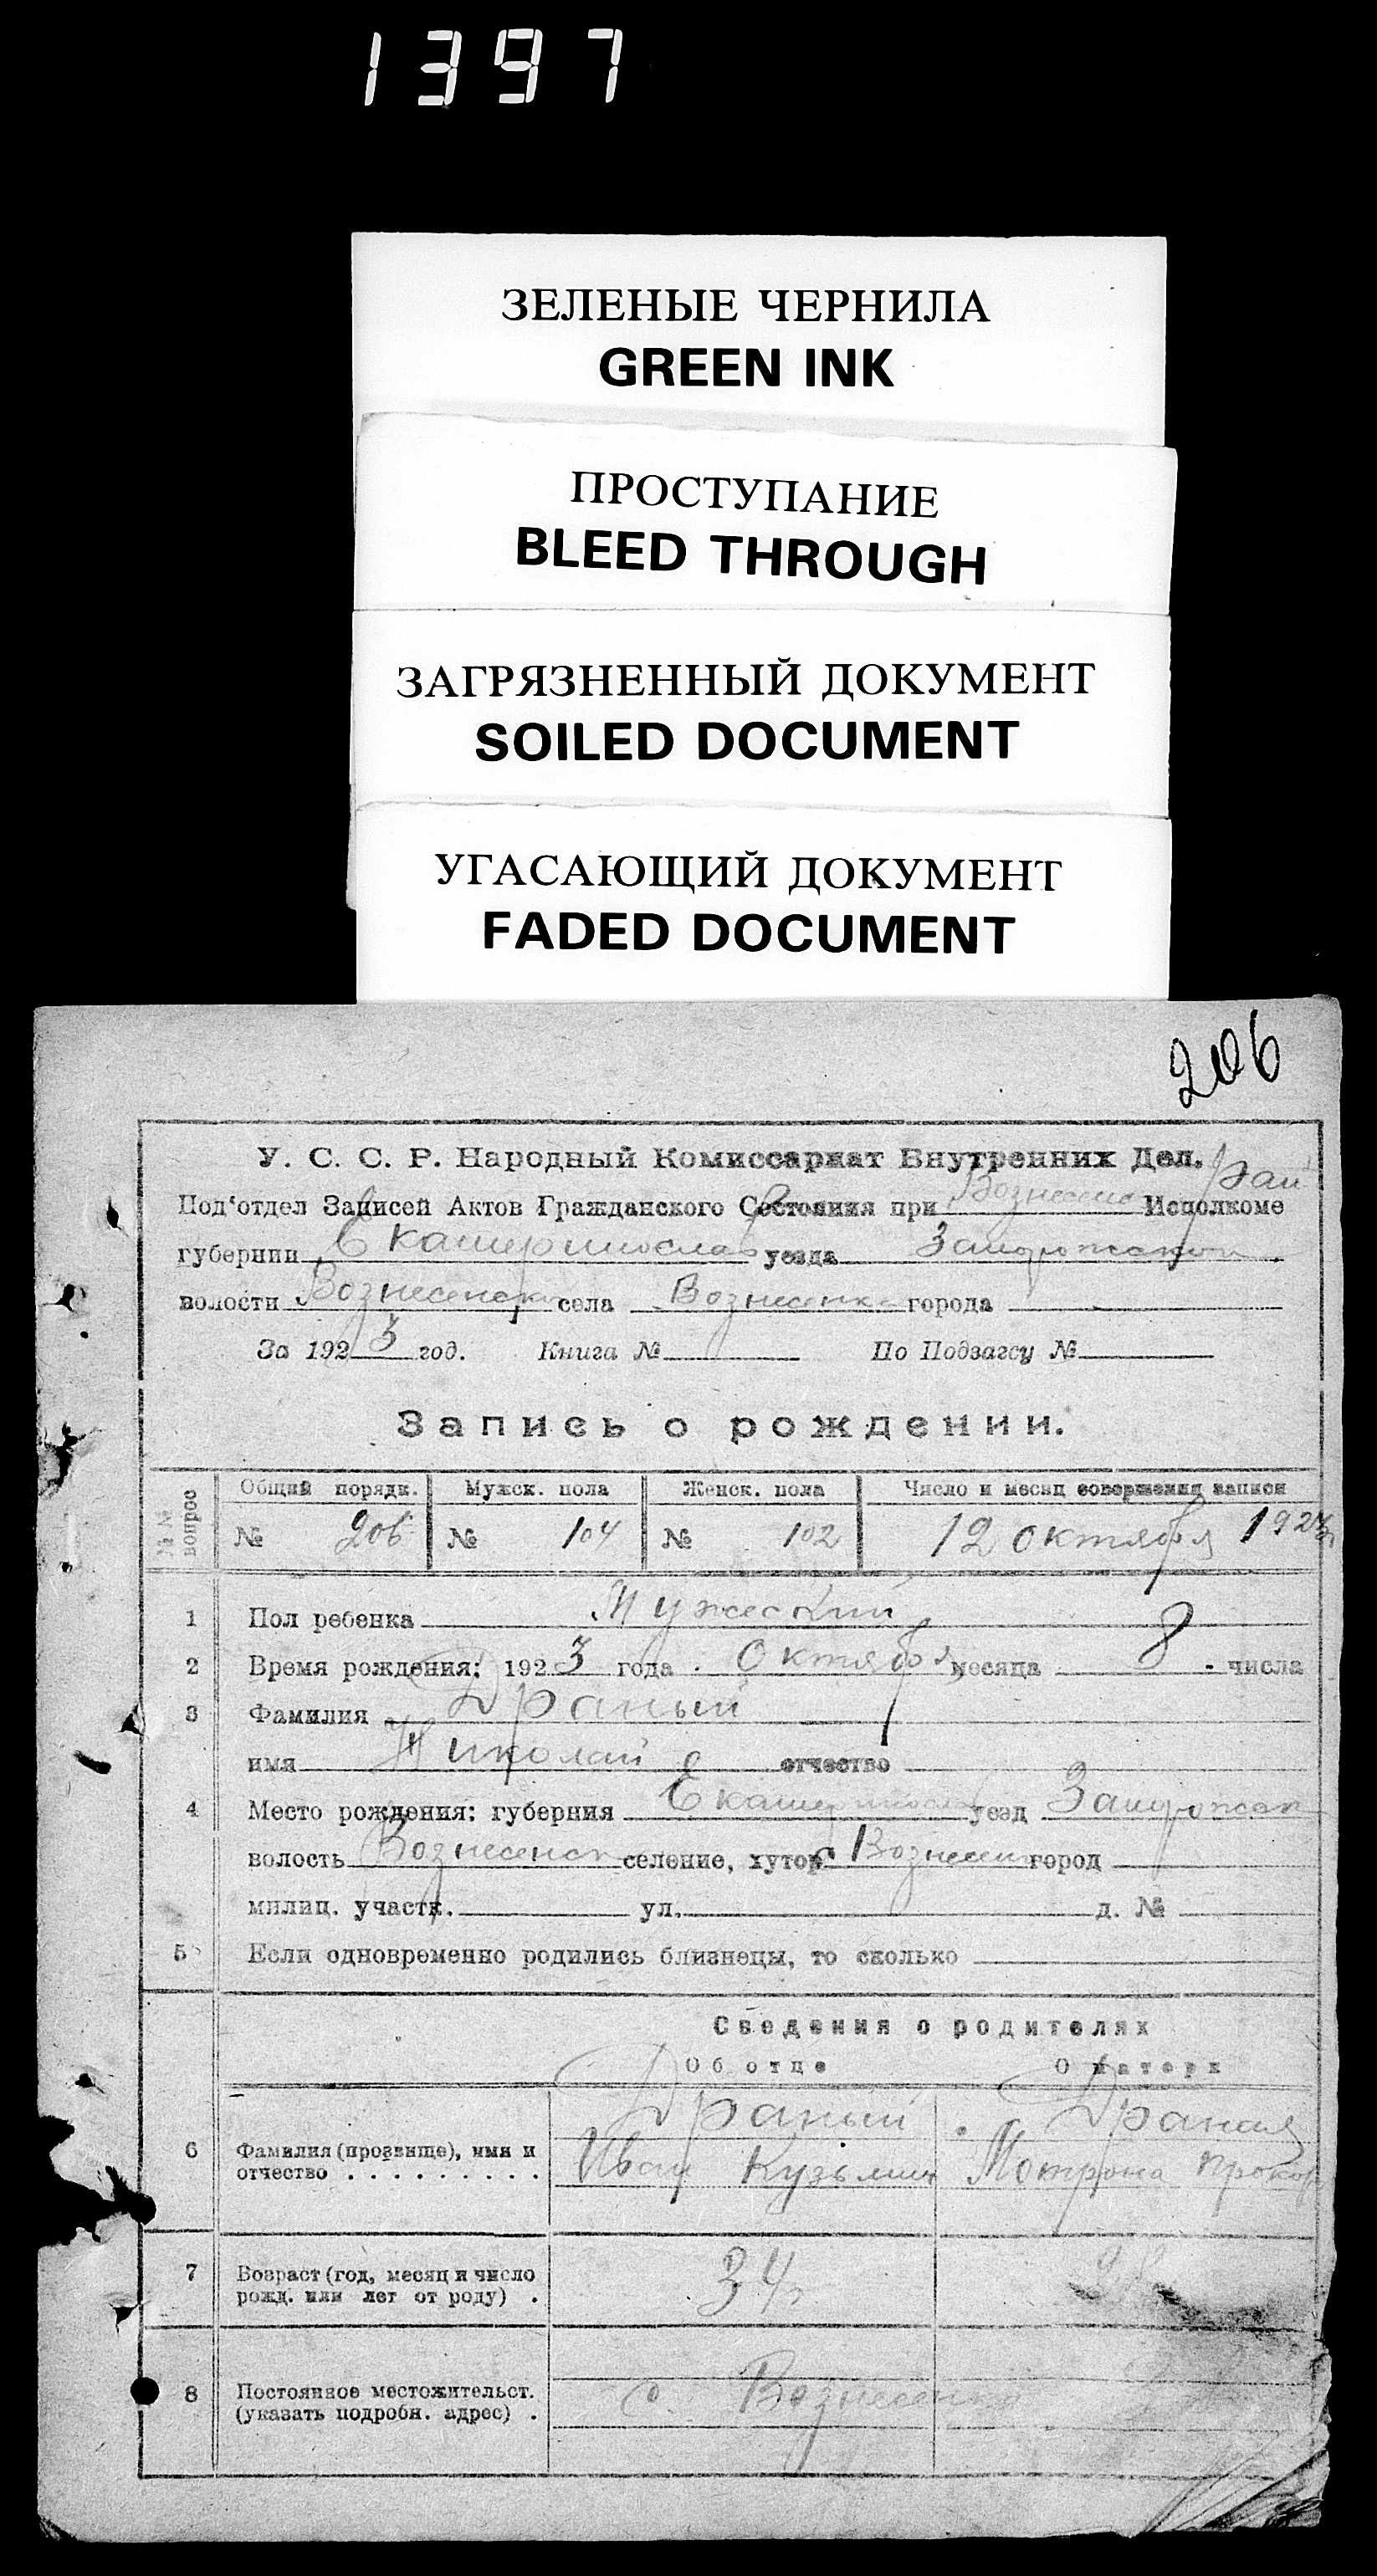 1397
ЗЕЛЕНЫЕ ЧЕРНИЛА
GREEN INK
ПРОСТУПАНИЕ
BLEED THROUGH
ЗАГРЯЗНЕННЫЙ ДОКУМЕНТ
SOILED DOCUMENT
УГАСАЮЩИЙ ДОКУМЕНТ
FADED DOCUMENT
206
У. С. С. Р. Народный Комиссариат Внутренних Дел.
Под'отдел Записей Актов Гражданского Состояния при Вознесенс Рай Исполкоме
губернии Екатеринослав уезда Запорожской
волости Вознесенской села Вознесенка города
За 1923 год. Книга № По Подзагсу №
Запись о рождении.
№№ вопрос Общий порядк. Мужск. пола Женск. пола Число и месяц совершения записи
№ 206 № 104 № 102 12 октября 1923
1 Пол ребенка Мужеский
2 Время рождения: 1923 года Октября месяца 8 числа
3 Фамилия Драный
имя Николай отчество
4 Место рождения: губерния Екатеринослав уезд Запорожск
волость Вознесенск селение, хутор с Вознесен город
милиц. участк. ул. д. №
5 Если одновременно родились близнецы, то сколько
Сведения о родителях
Об отце О матери
Драный Драная
6 Фамилия (прозвище), имя и
отчество . . . . . . . . . Иван Кузьмич Мотрона Прокоф
7 Возраст (год, месяц и число
рожд. или лет от роду) . 34
8 Постоянное местожительст.
(указать подробн. адрес) . с. Вознесенка